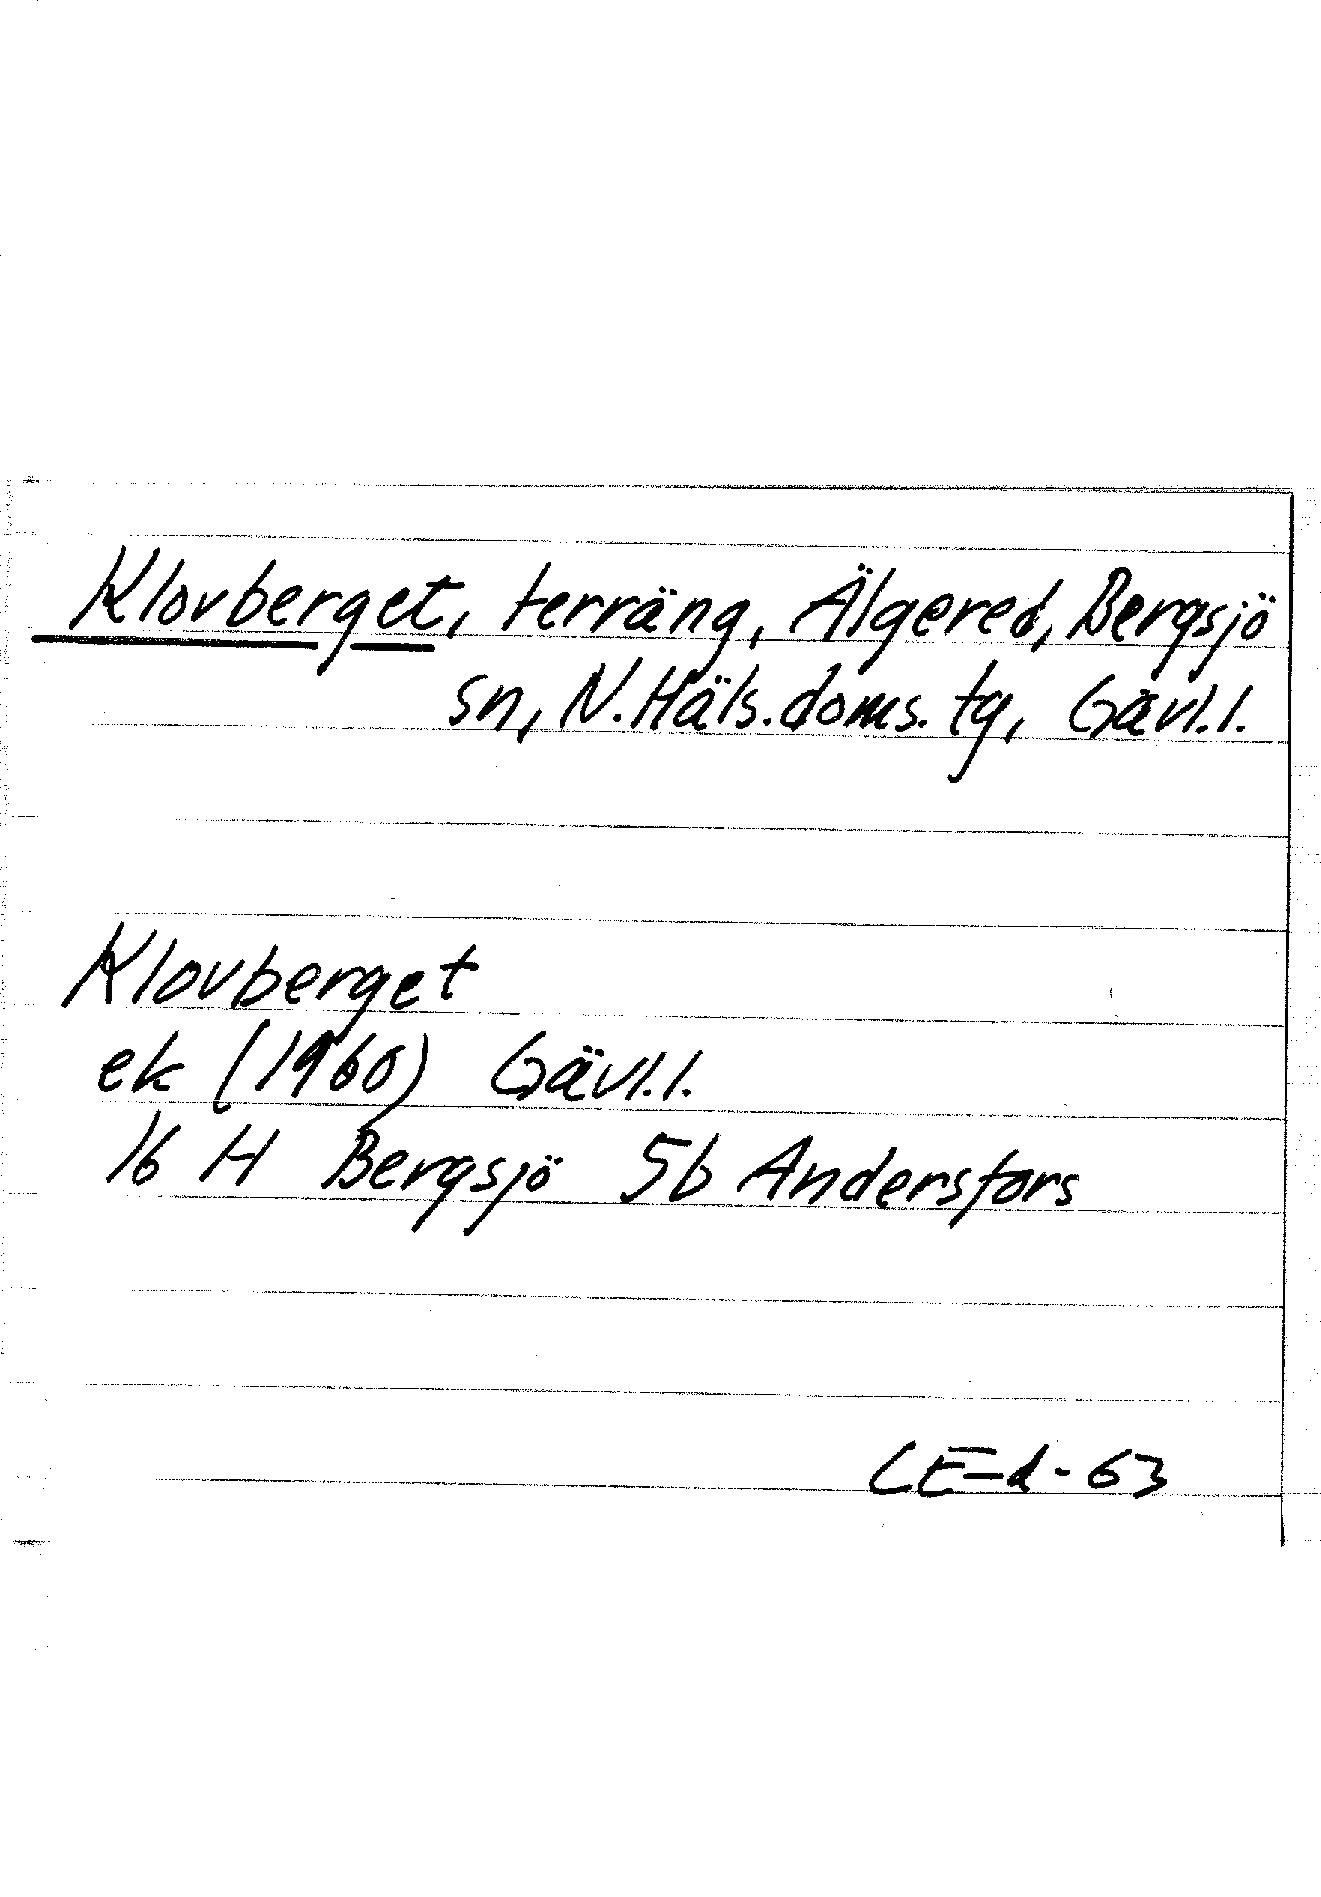 Klovberget, terräng, Älgered, Bergsjö
sn, N. Häls. doms. tg, Gävl. l.
Klovberget
ek (1960) Gävl. l.
16 H Bergsjö 5b Andersfors
CE-d-63